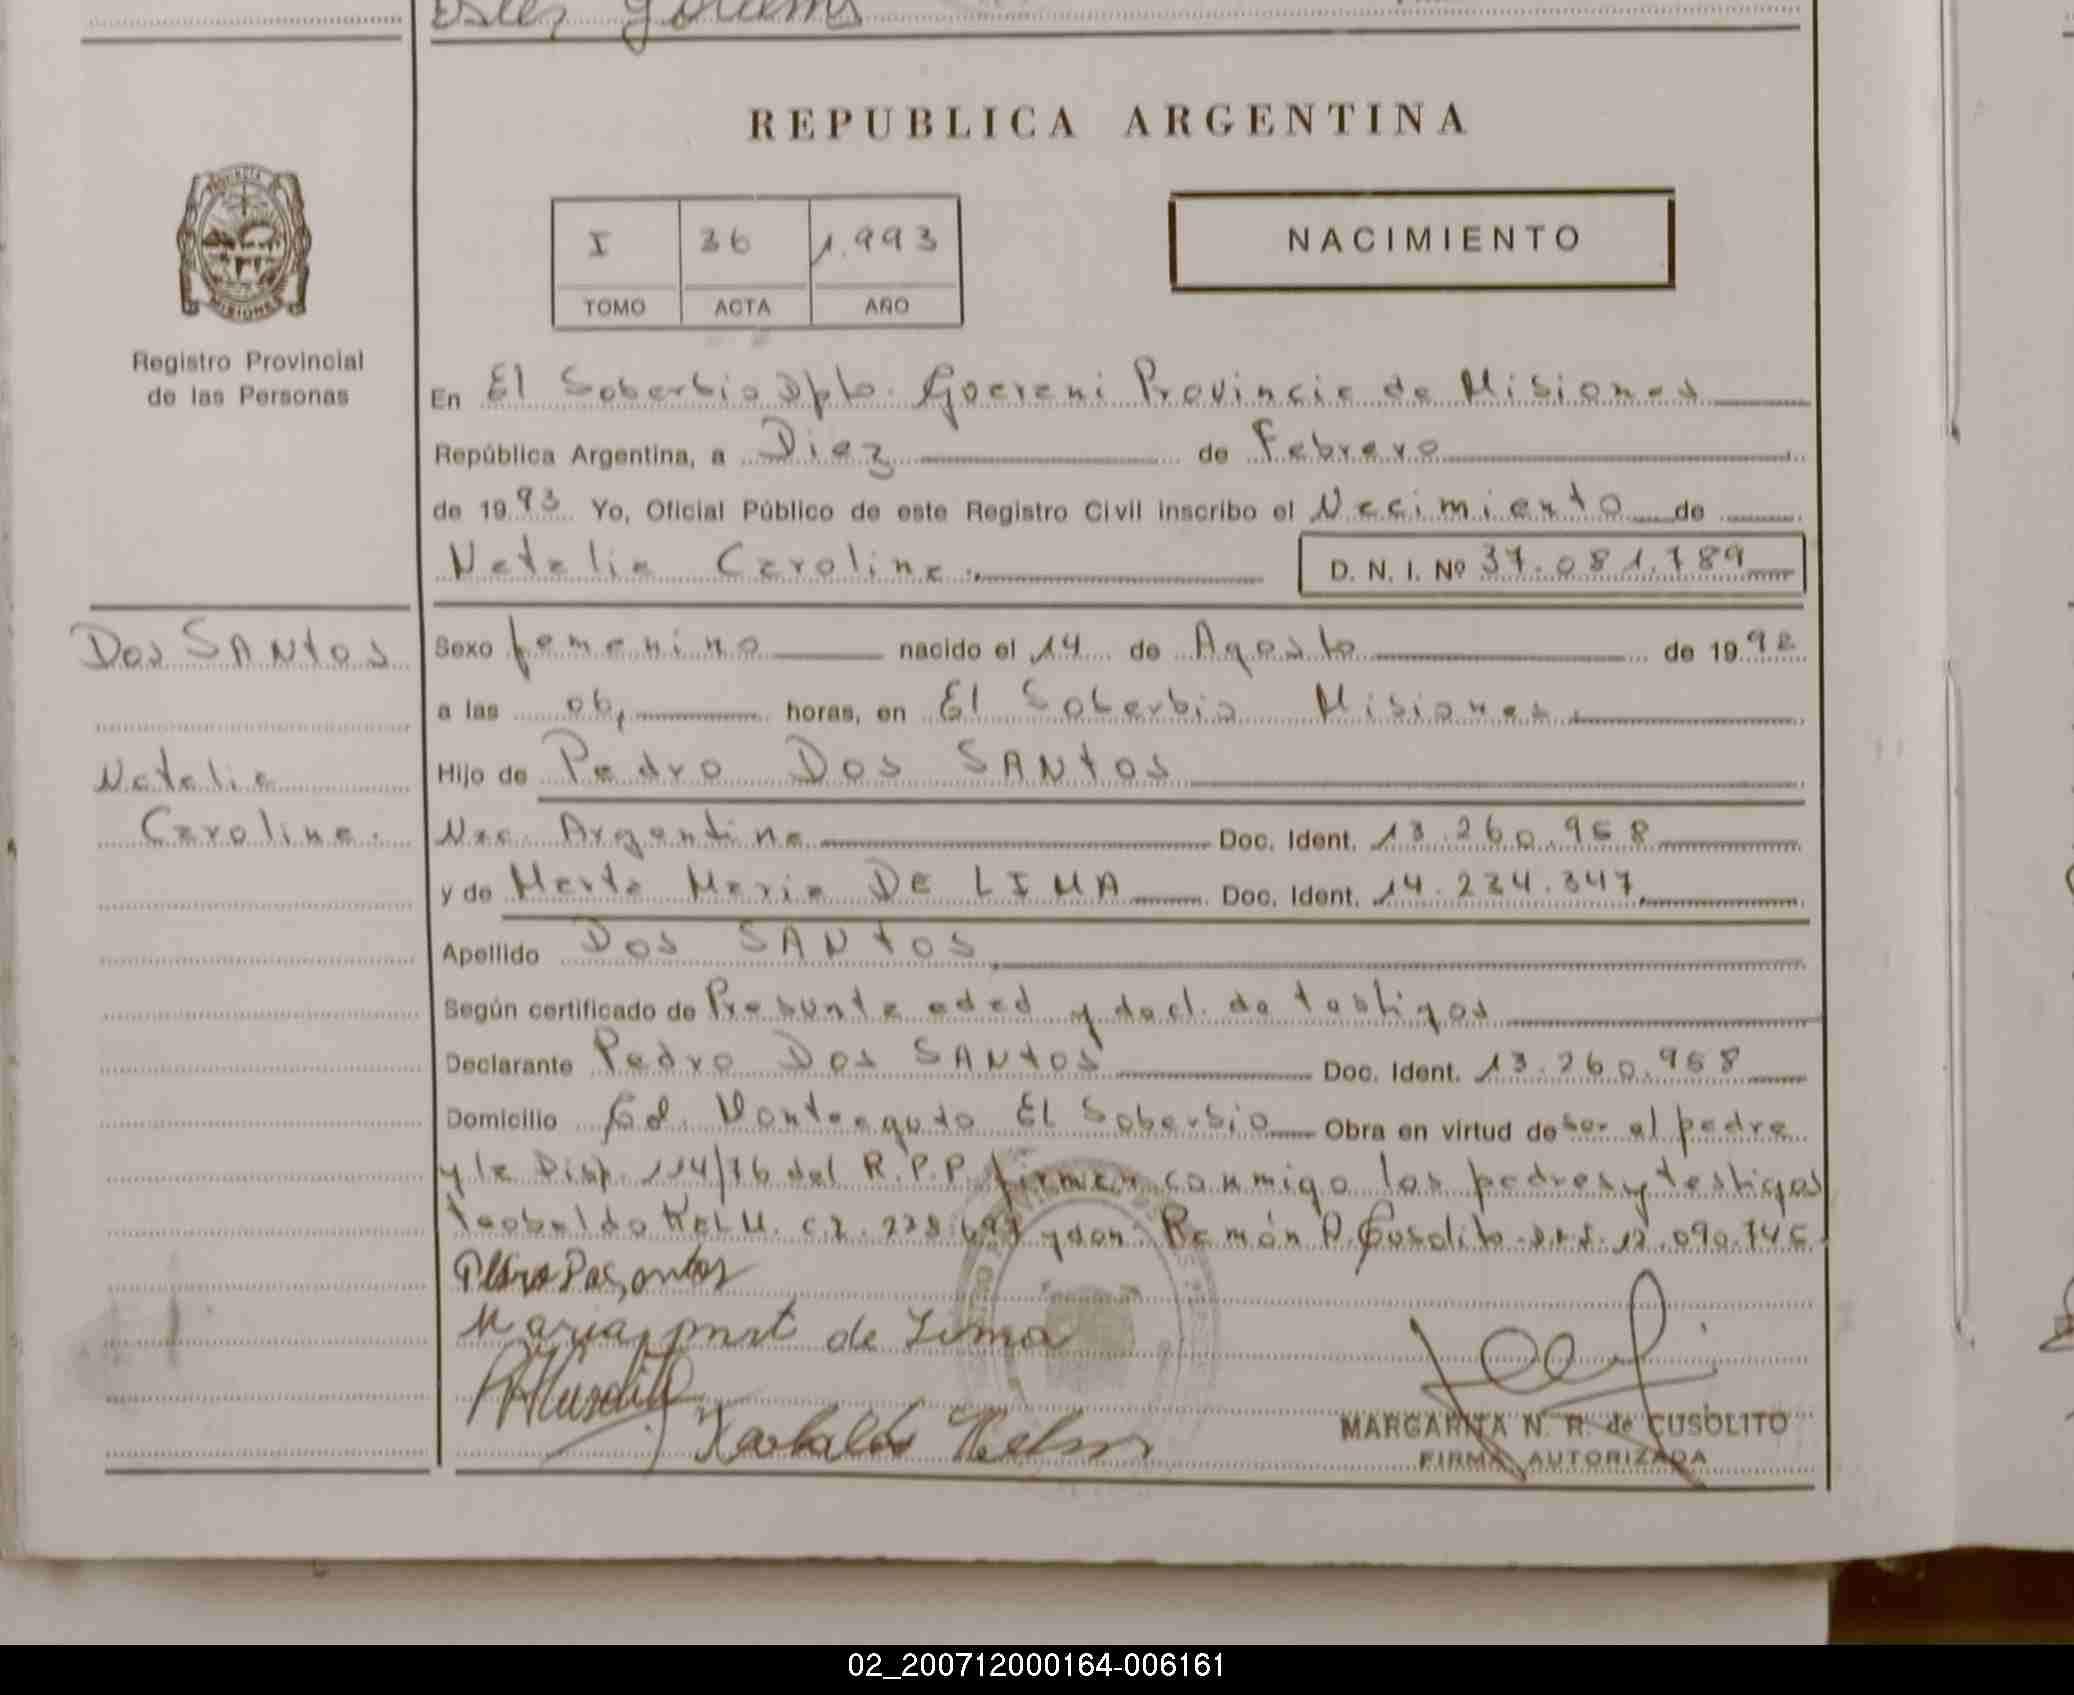 REPUBLICA ARGENTINA
I 36 1.993
TOMO ACTA AÑO
NACIMIENTO
Registro Provincial
de las Personas
En El Soberbio Dpto. Guarani Provincia de Misiones
República Argentina, a Diez de Febrero
de 1993 Yo, Oficial Público de este Registro Civil inscribo el Nacimiento de
Natalia Carolina.
D. N. I. Nº 37.081.789
Dos SANtos
Natalia
Carolina.
Sexo femenino nacido el 14 de Agosto de 1992
a las 06, horas, en El Soberbio Misiones.
Hijo de Pedro Dos SANtos
Nac. Argentina Doc. Ident. 13.260.968
y de Marta Maria DE LIMA Doc. Ident. 14.234.347
Apellido Dos SANtos
Según certificado de Presunta edad y decl. de testigos
Declarante Pedro Dos SANtos Doc. Ident. 13.260.968
Domicilio Col. Monteagudo El Soberbio Obra en virtud de ser el padre
y la Disp. 114/76 del R.P.P. firman conmigo los padres y testigos
Teobaldo y don Ramón A. Cusolito 12.090.746
de Lima
MARGARITA N. R. de CUSOLITO
FIRMA AUTORIZADA
02_200712000164-006161